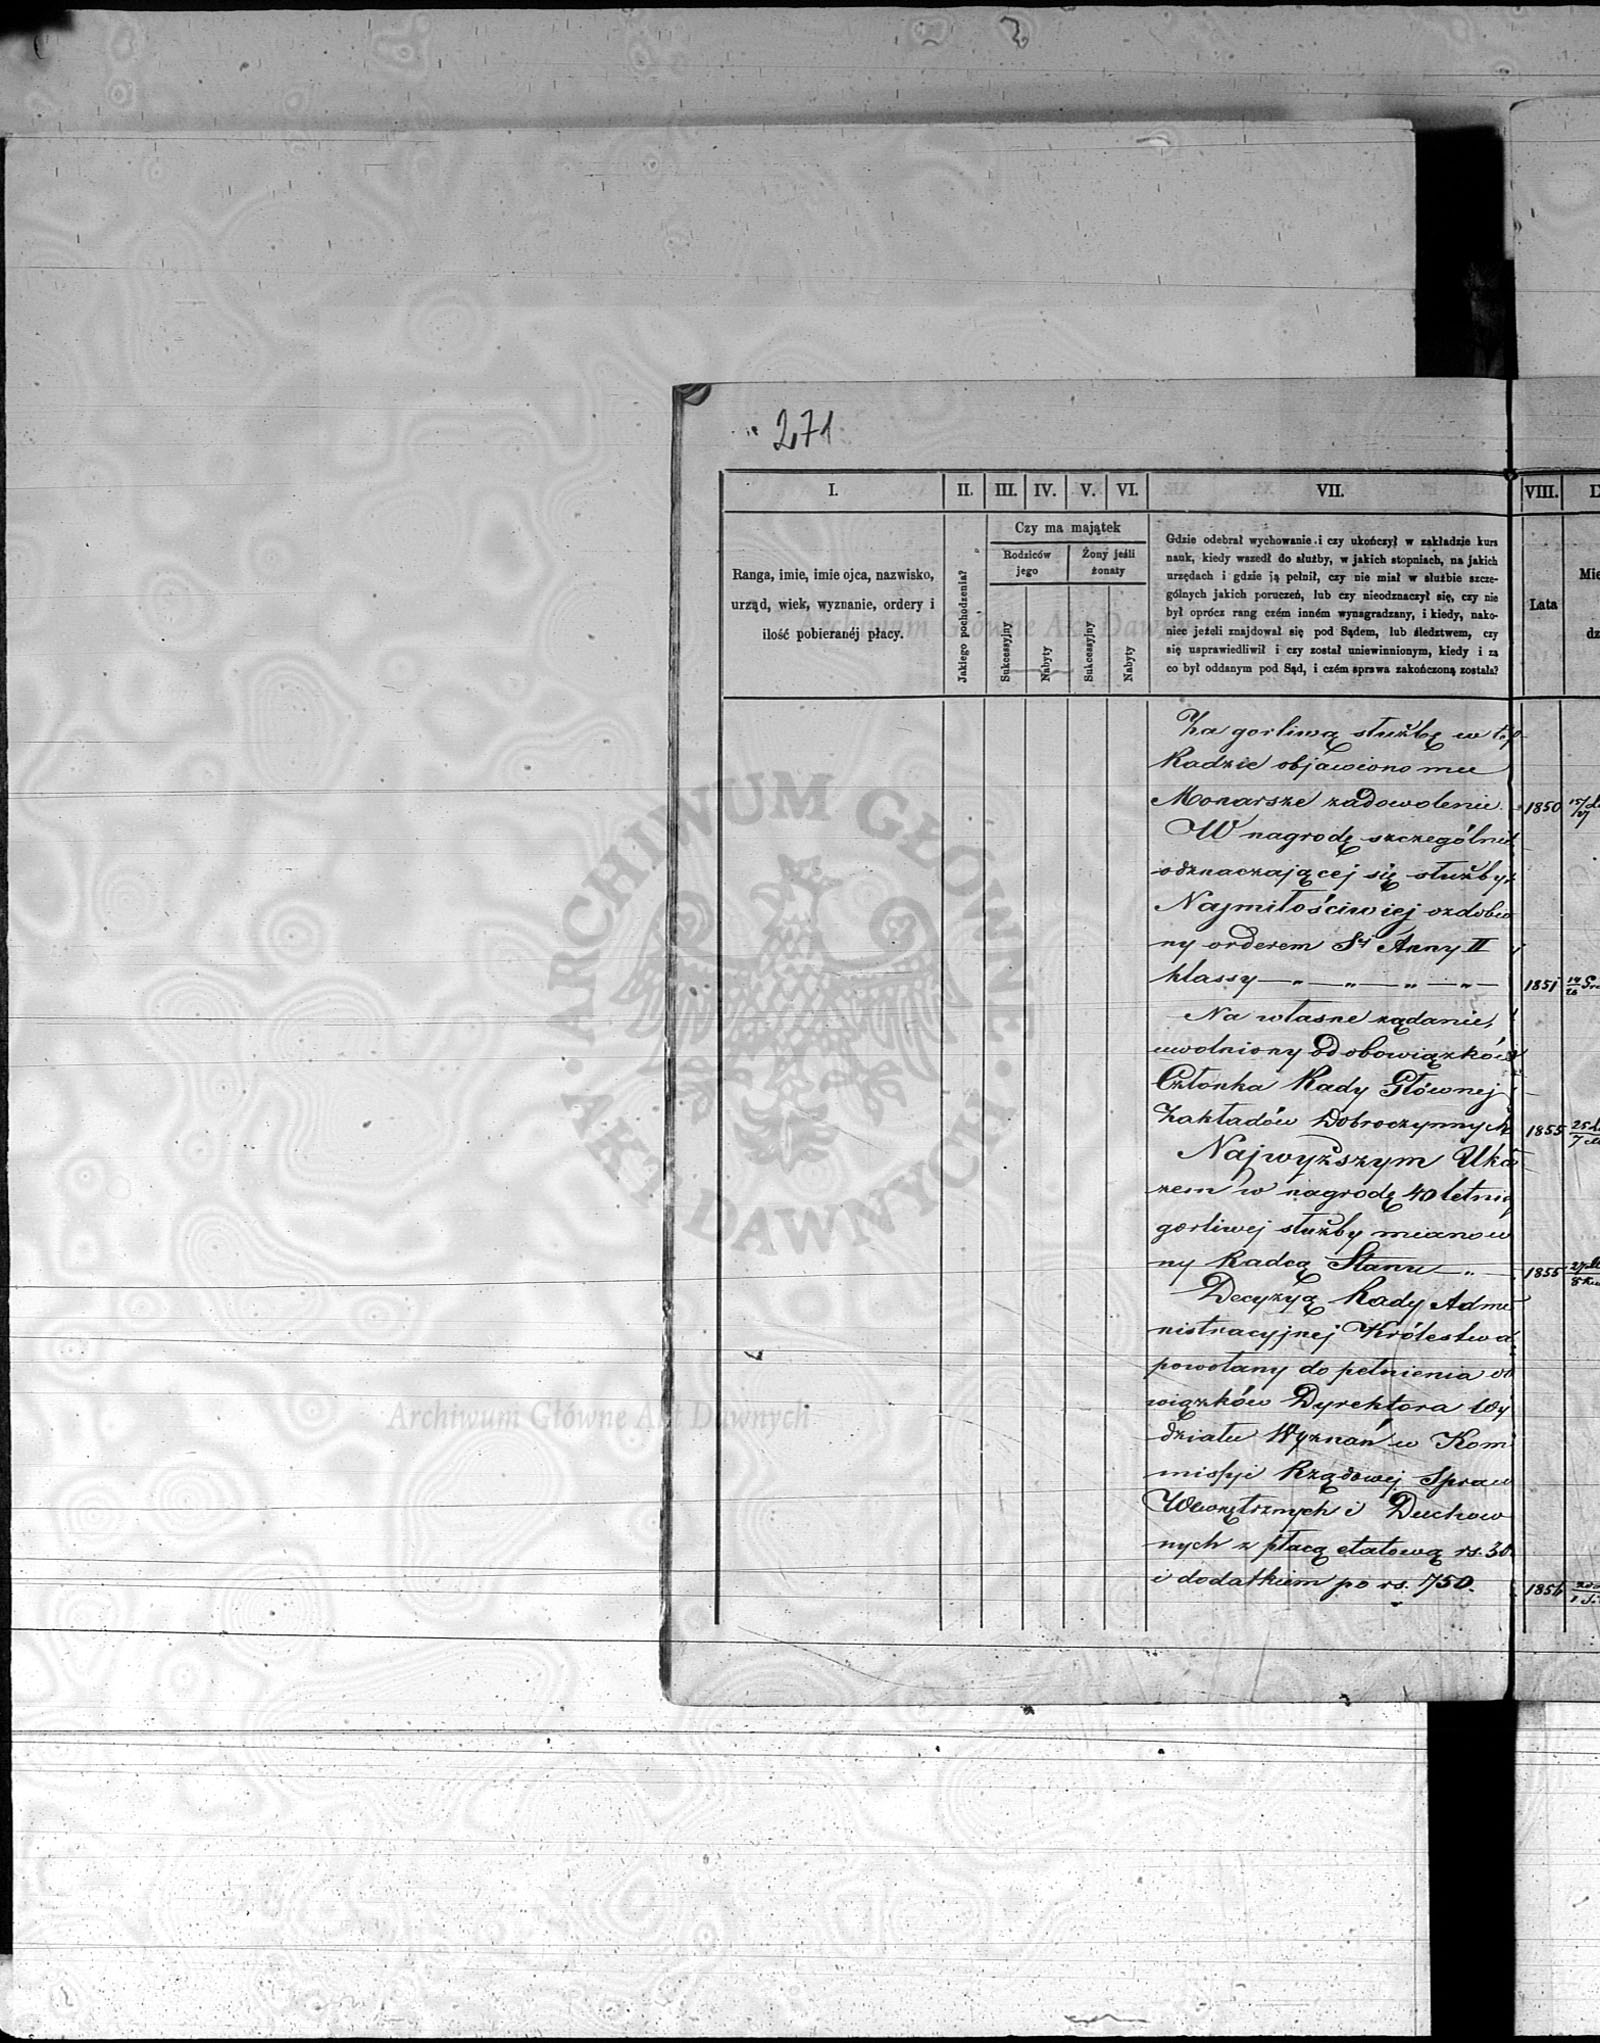 271
I. II. III. IV. V. VI. VII. VIII.
Ranga, imie, imie ojca, nazwisko,
urząd, wiek, wyznanie, ordery i
ilość pobieranéj płacy.
Jakiego pochodzenia?
Czy ma majątek
Rodziców
jego
Żony jeśli
żonaty
Sukcessyjny
Nabyty
Sukcessyjny
Nabyty
Gdzie odebrał wychowanie i czy ukończył w zakładzie kurs
nauk, kiedy wszedł do służby, w jakich stopniach, na jakich
urzędach i gdzie ją pełnił, czy nie miał w służbie szcze-
gólnych jakich poruczeń, lub czy nieodznaczył się, czy nie
był oprócz rang czém inném wynagradzany, i kiedy, nako-
niec jeżeli znajdował się pod Sądem, lub śledztwem, czy
się usprawiedliwił i czy został uniewinnionym, kiedy i za
co był oddanym pod Sąd, i czém sprawa zakończoną została?
Lata
Za gorliwą służbę w
Radzie objawiono mu
Monarsze zadowolenie. 1850
W nagrodę szczególnie
odznaczającej się służby
Najmiłościwiej ozdobio
ny orderem Sej Anny II
klassy — „ — „ — „ — „ — 1851
Na własne rządanie,
uwolniony od obowiązków
Członka Rady Głównej
Zakładów Dobroczynnych 1855
Najwyższym Uka
zem w nagrodę 40 letniej
gorliwej służby mianowa
ny Radcą Stanu — „ — 1855
Decyzyą Rady Admi
nistracyjnej Królestwa
powołany do pełnienia obo
wiązków Dyrektora Wy
działu Wyznań w Kom
missyi Rządowej Spraw
Wewnętrznych i Duchow
nych z płacą etatową rs.
i dodatkiem po rs. 750. 1856
ARCHIWUM GŁÓWNE AKT DAWNYCH
Archiwum Główne Akt Dawnych
Archiwum Główne Akt Dawnych